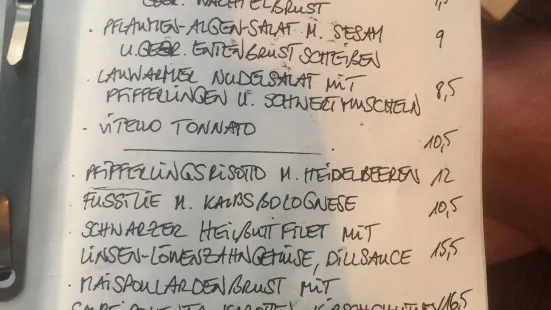 GEBR. WACHTELBRUST
· PFLANZEN-ALGEN-SALAT M. SESAM 9
U. GEBR. ENTENBRUSTSCHEIBEN
· LAUWARMER NUDELSALAT MIT
PFIFFERLINGEN U. SCHWERTMUSCHELN 8,5
· VITELLO TONNATO 10,5
· PFIFFERLINGSRISOTTO M. HEIDELBEEREN 12
· FUSSILIE M. KALBSBOLOGNESE 10,5
· SCHWARZER HEILBUTTFILET MIT
LINSEN-LÖWENZAHNGEMÜSE, DILLSAUCE 15,5
· MAISPOULARDENBRUST MIT
KAROTTEN, 16,5